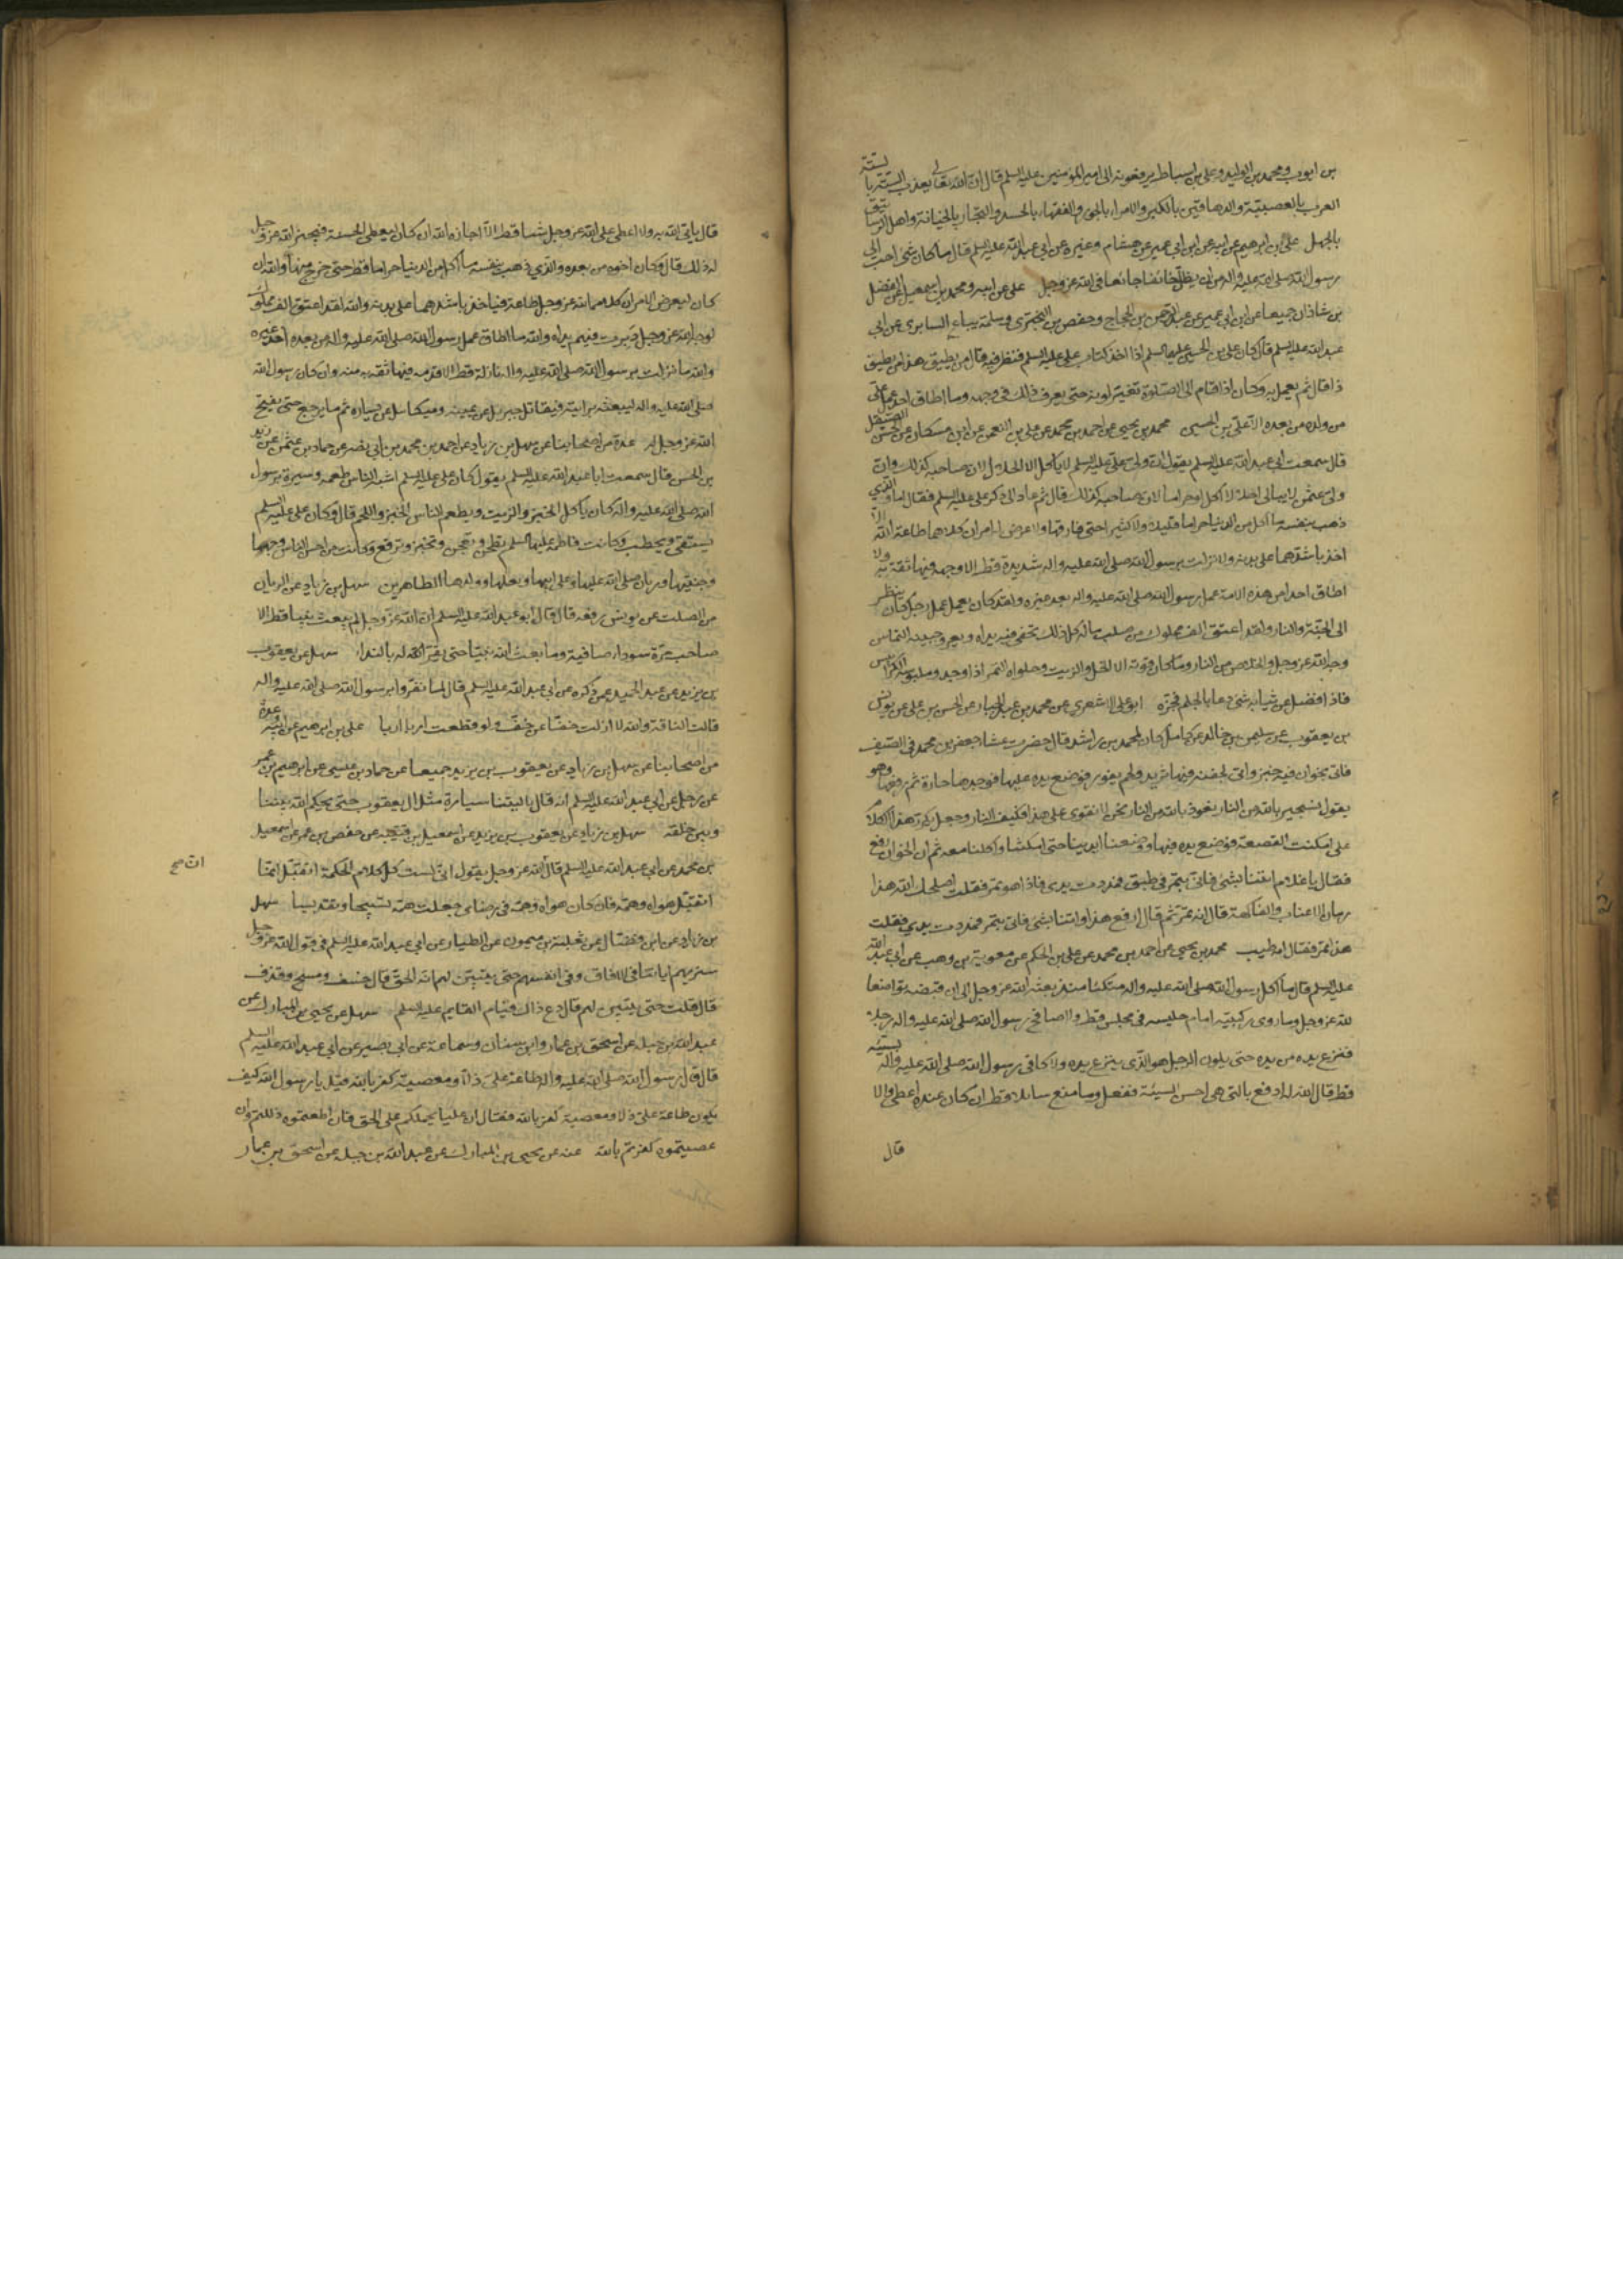 بن ايوب ومحمد بن الوليد وعلي بن اسباط يرفعونه الى امير المؤمنين عليه السلم قال ان الله تعالى يعذب الستة بالستة
العرب بالعصبية والدهاقين بالكبر والامراء بالجور والفقهاء بالحسد والتجار بالخيانة واهل الرساتيق
بالجهل علي بن ابرهيم عن ابيه عن ابن ابي عمير عن هشام وغيره عن ابي عبد الله عليه السلم قال ما كان شئ احب الى
رسول الله صلى الله عليه واله من ان يظل خائفا جائعا في الله عز وجل علي عن ابيه ومحمد بن اسمعيل عن الفضل
بن شاذان جميعا عن ابن ابي عمير عن عبد الرحمن بن الحجاج وحفص بن البختري وسلمة بياع السابري عن ابي
عبد الله عليه السلم قال كان علي بن الحسين عليهما السلم اذا اخذ كتاب علي عليه السلم فنظر فيه قال من يطيق هذا من يطيق
ذا قال ثم يعمل به وكان اذا قام الى الصلوة تغير لونه حتى يعرف ذلك في وجهه وما اطاق احد عمل علي
من ولده من بعده الا علي بن الحسين محمد بن يحيى عن احمد بن محمد عن علي بن النعمن عن ابن مسكان عن الحسن الصيقل
قال سمعت ابي عبد الله عليه السلم يقول ان ولي علي عليه السلم لا ياكل الا الحلال لان صاحبه كذلك وان
ولي عثمن لا يبالي احلالا اكل او حراما لان صاحبه كذلك قال ثم عاد الى ذكر علي عليه السلم فقال اما والذي
ذهب بنفسه ما اكل من الدنيا حراما قليلا ولا كثيرا حتى فارقها ولا عرض له امران كلاهما طاعة الله الا
اخذ باشدهما على بدنه ولا نزلت برسول الله صلى الله عليه واله شديدة قط الا وجهه فيها ثقة به ولا
اطاق احد من هذه الامة عمل رسول الله صلى الله عليه واله بعده غيره ولقد كان يعمل عمل رجل كان ينظر
الى الجنة والنار ولقد اعتق الف مملوك من صلب ماله كل ذلك تحفى فيه يداه ويعرق جبينه التماس
وجه الله عز وجل والخلاص من النار وما كان قوته الا الخل والزيت وحلواه التمر اذا وجده وملبوسه الكرابيس
فاذا فضل عن ثيابه شئ دعا بالجلم فجزه ابو علي الاشعري عن محمد بن عبد الجبار عن الحسن بن علي عن يونس
بن يعقوب عن سليمن بن خالد عن عامل كان لمحمد بن راشد قال حضرت عشاء جعفر بن محمد في الصيف
فاتي بخوان فيه خبز واتي بجفنة فيها ثريد ولحم يفور فوضع يده عليها فوجدها حارة ثم رفعها وهو
يقول نستجير بالله من النار نعوذ بالله من النار نحن لا نقوى على هذا فكيف النار وجعل يكرر هذا الكلام
حتى امكنت القصعة فوضع يده فيها ووضعنا ايدينا حتى امكنتنا فاكل واكلنا معه ثم ان الخوان رفع
فقال يا غلام ائتنا بشئ فاتي بتمر في طبق فمددت يدي فاذا هو تمر فقلت اصلحك الله هذا
زمان الاعناب والفاكهة قال انه تمر ثم قال ارفع هذا وائتنا بشئ فاتي بتمر فمددت يدي فقلت
هذا تمر فقال انه طيب محمد بن يحيى عن احمد بن محمد عن علي بن الحكم عن معوية بن وهب عن ابي عبد الله
عليه السلم قال ما اكل رسول الله صلى الله عليه واله متكئا منذ بعثه الله عز وجل الى ان قبضه تواضعا
لله عز وجل وما روى ركبتيه امام جليسه في مجلس قط ولا صافح رسول الله صلى الله عليه واله رجلا
فنزع يده من يده حتى يكون الرجل هو الذي ينزع يده ولا كافى رسول الله صلى الله عليه واله بسيئة
قط قال الله له ادفع بالتي هي احسن السيئة ففعل وما منع سائلا قط ان كان عنده اعطى والا
قال
قال ياتي الله به ولا اعطى على الله عز وجل شيئا قط الا اجازه الله ان كان ليعطي الجنة فيجيز الله عز وجل
له ذلك قال وكان اخوه من بعده والذي ذهب بنفسه ما اكل من الدنيا حراما قط حتى خرج منها والله ان
كان ليعرض له الامران كلاهما لله عز وجل طاعة فياخذ باشدهما على بدنه والله لقد اعتق الف مملوك
لوجه الله عز وجل دبرت فيهم يداه والله ما اطاق عمل رسول الله صلى الله عليه واله من بعده احد غيره
والله ما نزلت برسول الله صلى الله عليه واله نازلة قط الا قدمه فيها ثقة به منه وان كان رسول الله
صلى الله عليه واله ليبعثه برايته فيقاتل جبريل عن يمينه وميكائيل عن يساره ثم ما يرجع حتى يفتح
الله عز وجل له عدة من اصحابنا عن سهل بن زياد عن احمد بن محمد بن ابي نصر عن حماد بن عثمن عن زيد
بن الحسن قال سمعت ابا عبد الله عليه السلم يقول كان علي عليه السلم اشبه الناس طعمه وسيرة برسول
الله صلى الله عليه واله كان ياكل الخبز والزيت ويطعم الناس الخبز واللحم قال وكان علي عليه السلم
يستقي ويحطب وكانت فاطمة عليها السلم تطحن وتعجن وتخبز وترقع وكانت من احسن الناس وجها
وجنتيها وردتان صلى الله عليها وعلى ابيها وبعلها وولدها الطاهرين سهل بن زياد عن الريان
من الصلت عن يونس رفعه قال قال ابو عبد الله عليه السلم ان الله عز وجل لم يبعث نبيا قط الا
صاحب مرة سوداء صافية وما بعث الله نبيا حتى يقر الله له بالبداء سهل عن يعقوب
بن يزيد عن عبد الحميد عمن ذكره عن ابي عبد الله عليه السلم قال لما نفروا برسول الله صلى الله عليه واله
قالت الناقة والله لا ازلت خفا عن خف ولو قطعت اربا اربا علي بن ابرهيم عن ابيه عدة
من اصحابنا عن سهل بن زياد عن يعقوب بن يزيد جميعا عن حماد بن عيسى عن ابرهيم بن عمر
عن رجل عن ابي عبد الله عليه السلم انه قال يا ليتنا سيارة مثل ال يعقوب حتى يحكم الله بيننا
وبين خلقه سهل بن زياد عن يعقوب بن يزيد عن اسمعيل بن قتيبه عن حفص بن عمر عن اسمعيل
بن محمد عن ابي عبد الله عليه السلم قال الله عز وجل يقول اني لست كل كلام الحكمة اتقبل انما
ان صح
اتقبل هواه وهمه فان كان هواه وهمه في رضاى جعلت همه تسبيحا وتقديسا سهل
بن زياد عن ابن فضال عن ثعلبة بن ميمون عن الطيار عن ابي عبد الله عليه السلم في قول الله عز وجل
سنريهم اياتنا في الافاق وفي انفسهم حتى يتبين لهم انه الحق قال خسف ومسخ وقذف
قال قلت حتى يتبين لهم قال دع ذاك قيام القايم عليه السلم سهل عن يحيى بن المبارك عن
عبد الله بن جبله عن اسحق بن عمار وابن سنان وسماعة عن ابي بصير عن ابي عبد الله عليه السلم
قال قال رسول الله صلى الله عليه واله طاعة علي ذلا ومعصيته كفر بالله قيل يا رسول الله كيف
يكون طاعة علي ذلا ومعصيته كفر بالله فقال ان عليا يحملكم على الحق فان اطعتموه ذللتم وان
عصيتموه كفرتم بالله عنه عن يحيى بن المبارك عن عبد الله بن جبله عن اسحق بن عمار